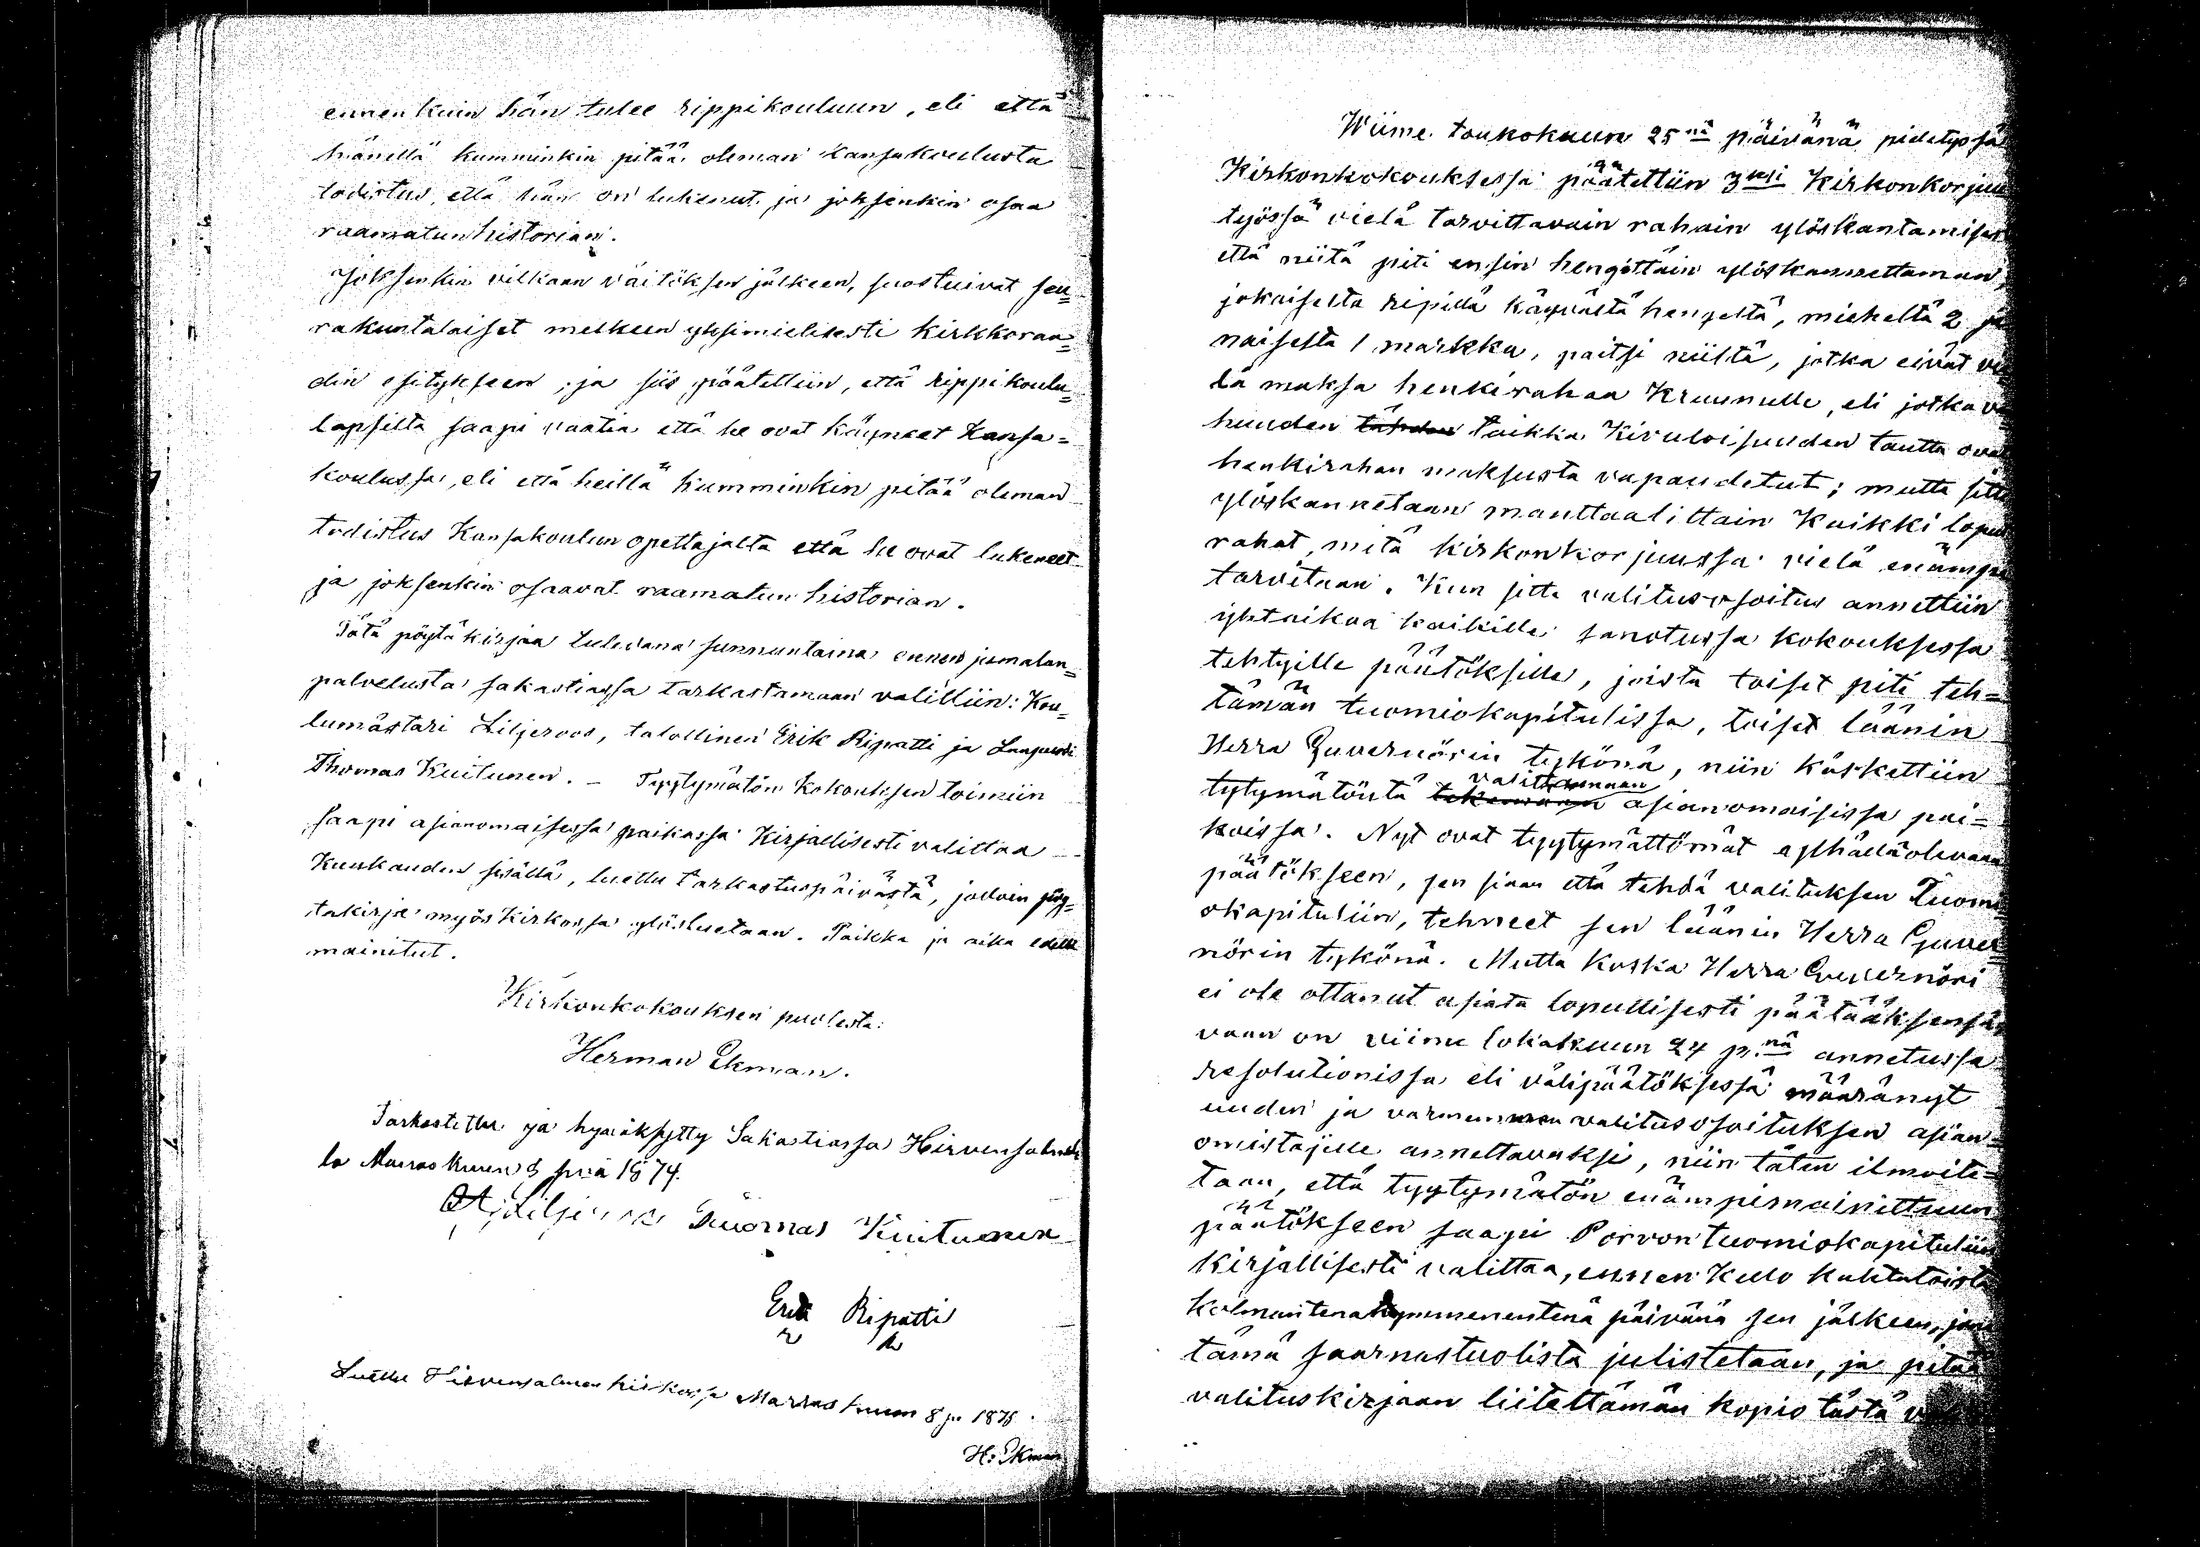 ennenkuin hän tulee rippikouluun, eli että
hänellä kumminkin pitää oleman Kansakoulusta
todistus, että hän on lukenut ja joksenkin osaa
raamatun historian.
Joksenkin vilkaan väitöksen jälkeen, suostuivat seu=
rakuntalaiset melkeen yksimielisesti kirkkoraa=
din esitykseen, ja siis päätettiin, että rippikoulu=
lapsilta saapi vaatia että he ovat käyneet Kansa=
koulussa, eli että heillä kumminkin pitää oleman
todistus Kansakoulun opettajalta että he ovat lukeneet
ja joksenkin osaavat raamatun historian.
Tätä pöytäkirjaa tulevana sunnuntaina ennen jumalan=
palvelusta sakastiassa tarkastamaan valittiin: Kou=
lumästari Liljeroos, talollinen Erik Ripatti ja Lampuodi
Thomas Kuitunen. – Tyytymätön Kokouksen toimiin
saapi asianomaisessa paikassa Kirjallisesti valittaa
Kuukauden sisällä, luettu tarkastuspäivästä, jolloin pöy=
täkirja myös Kirkossa ylösluetaan. Paikka ja aika edellä
mainitut.
Kirkonkokouksen puolesta:
Herman Ekman.
Tarkastettu ja hyväksytty Sakastiassa Hirvensalmel
la Marraskuun pnä 1874.
Tuomas Kuitunen
Erik Ripatti
Luettu Hirvensalmen kirkossa Marraskuun 8 p.
H: Ekman
Wiime toukokuun 25nä päivänä pidetyssä
Kirkonkokouksessa päätettiin 3ksi Kirkonkorjuu
työssä vielä tarvittavain rahain ylöskantamises
että niitä piti ensin hengittäin ylöskannettaman,
jokaiselta ripillä käyvältä hengeltä, mieheltä 2 ja
naiselta 1 markka, paitsi niiltä, jotka eivät vie
lä maksa henkirahaa Kruunulle, eli jotka va
huuden tähden taikka Kivuloisuuden tautta ovat
henkirahan maksusta vapaudetut; mutta sitte
ylöskannetaan manttaalittain Kaikki loput
rahat, mitä kirkonkorjuussa vielä enämpi
tarvitaan. Kun sitte valitusosoitus annettiin
yhtaikaa kaikille sanotussa kokouksessa
tehtyille päätöksille, joista toiset piti teh=
tämän tuomiokapitulissa, toiset läänin
Herra Guvernörin tykönä, niin käskettiin
valittamaan
tytymätöntä tekemään asianomaisissa pai=
koissa. Nyt ovat tyytymättömät
päätökseen, sen siaan että tehdä valituksen Tuomi
okapituliin, tehneet sen läänin Herra Guver=
nörin tykönä. Mutta koska Herra Guvernöri
ei ole ottanut asiata lopullisesti päätääksensä,
vaan on viime lokakuun 24 p.nä annetussa
resolutionissa eli välipäätöksessä määrännyt
uuden ja varmemman valitusosoituksen asian=
omistajille annettavaksi, niin täten ilmoite=
taan, että tyytymätön enämpimainittuun
päätökseen saapi Porvon tuomiokapituliin
kirjallisesti valittaa, ennen Kello kahtatoista
kolmantenakymmenentenä päivänä sen jälkeen, jona
tämä saarnastuolista julistetaan, ja pitää
valituskirjaan liitettämän kopio tästä